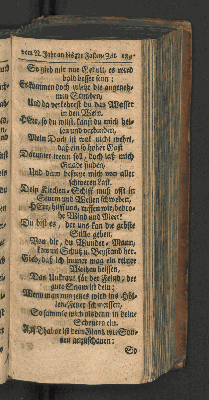 vom XI. Jahr an bis zur Fasten-Zeit.
So gieb mir nur Gedult, es wird
bald besser seyn;
So kommen doch wieder die angeneh-
men Stunden,
Und da verkehrest du das Wasser
in den Wein.
HErr, so du wilst, kanst du mich hei-
len und verbinden,
Mein Dach ist war nicht wehrt,
daß ein so hoher Gast
Darunter treten soll, doch laß mich
Gnade finden,
Und dann befreye mich von aller
schweren Last.
Dein Kirchen-Schiff muß offt in
Sturm und Wellen schweben,
HErr, hilff uns, ruffen wir, bedro-
he Wind und Meer!
Du bist es, der uns kan die gröste
Stille geben.
Von dir, du Wunder-Mann,
kommt Schutz u. Beystand her.
Gieb, daß ich immer mag ein reiner
Weitzen heissen,
Das Unkraut säet der Feind, der
gute Saame ist dein;
Wenn man nun jenes wird ins Höl-
len-Feuer schmeissen,
So samle mich alsdenn in deine
Scheuren ein.
Auf Thabor ist dein Glantz wie Son-
nen anzuschauen:
So